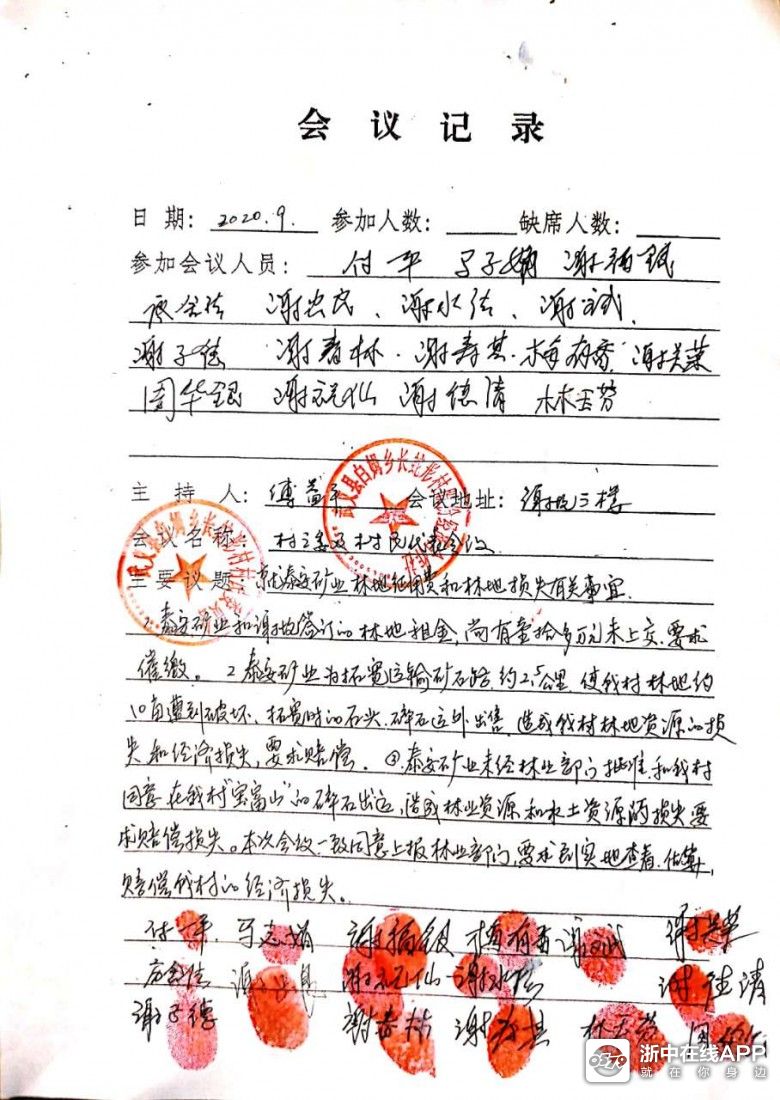 会议记录
日期：2020.9. 参加人数： 缺席人数：
参加会议人员： 付平
谢农民、谢水法、谢斌
谢子德 谢春林、谢寿其、梅有香
周华银 谢祝仙 谢德清 林玉芳
主持人： 傅益平 会议地址： 三楼
会议名称： 村三委及村民代表会议
主要议题： 就泰安矿业林地征用费和林地损失有关事宜
1、泰安矿业和 签订的林地租金，尚有壹拾多万元未上交，要求
催缴。 2泰安矿业为拓宽运输矿石路，约2.5公里，使我村林地约
10亩遭到破坏，拓宽时的石头、碎石运外出售，造成我村林地资源的损
失和经济损失，要求赔偿。 ③泰安矿业未经林业部门批准和我村
同意，在我村"宝富山"的碎石出运，造成林业资源和水土资源的损失要
求赔偿损失。本次会议一致同意上报林业部门，要求到实地查看，估算，
赔偿我村的经济损失。
梅有香
谢祝仙 谢水法 谢德清
谢子德 谢春林 谢寿其 林玉芳
浙中在线APP
就在你身边